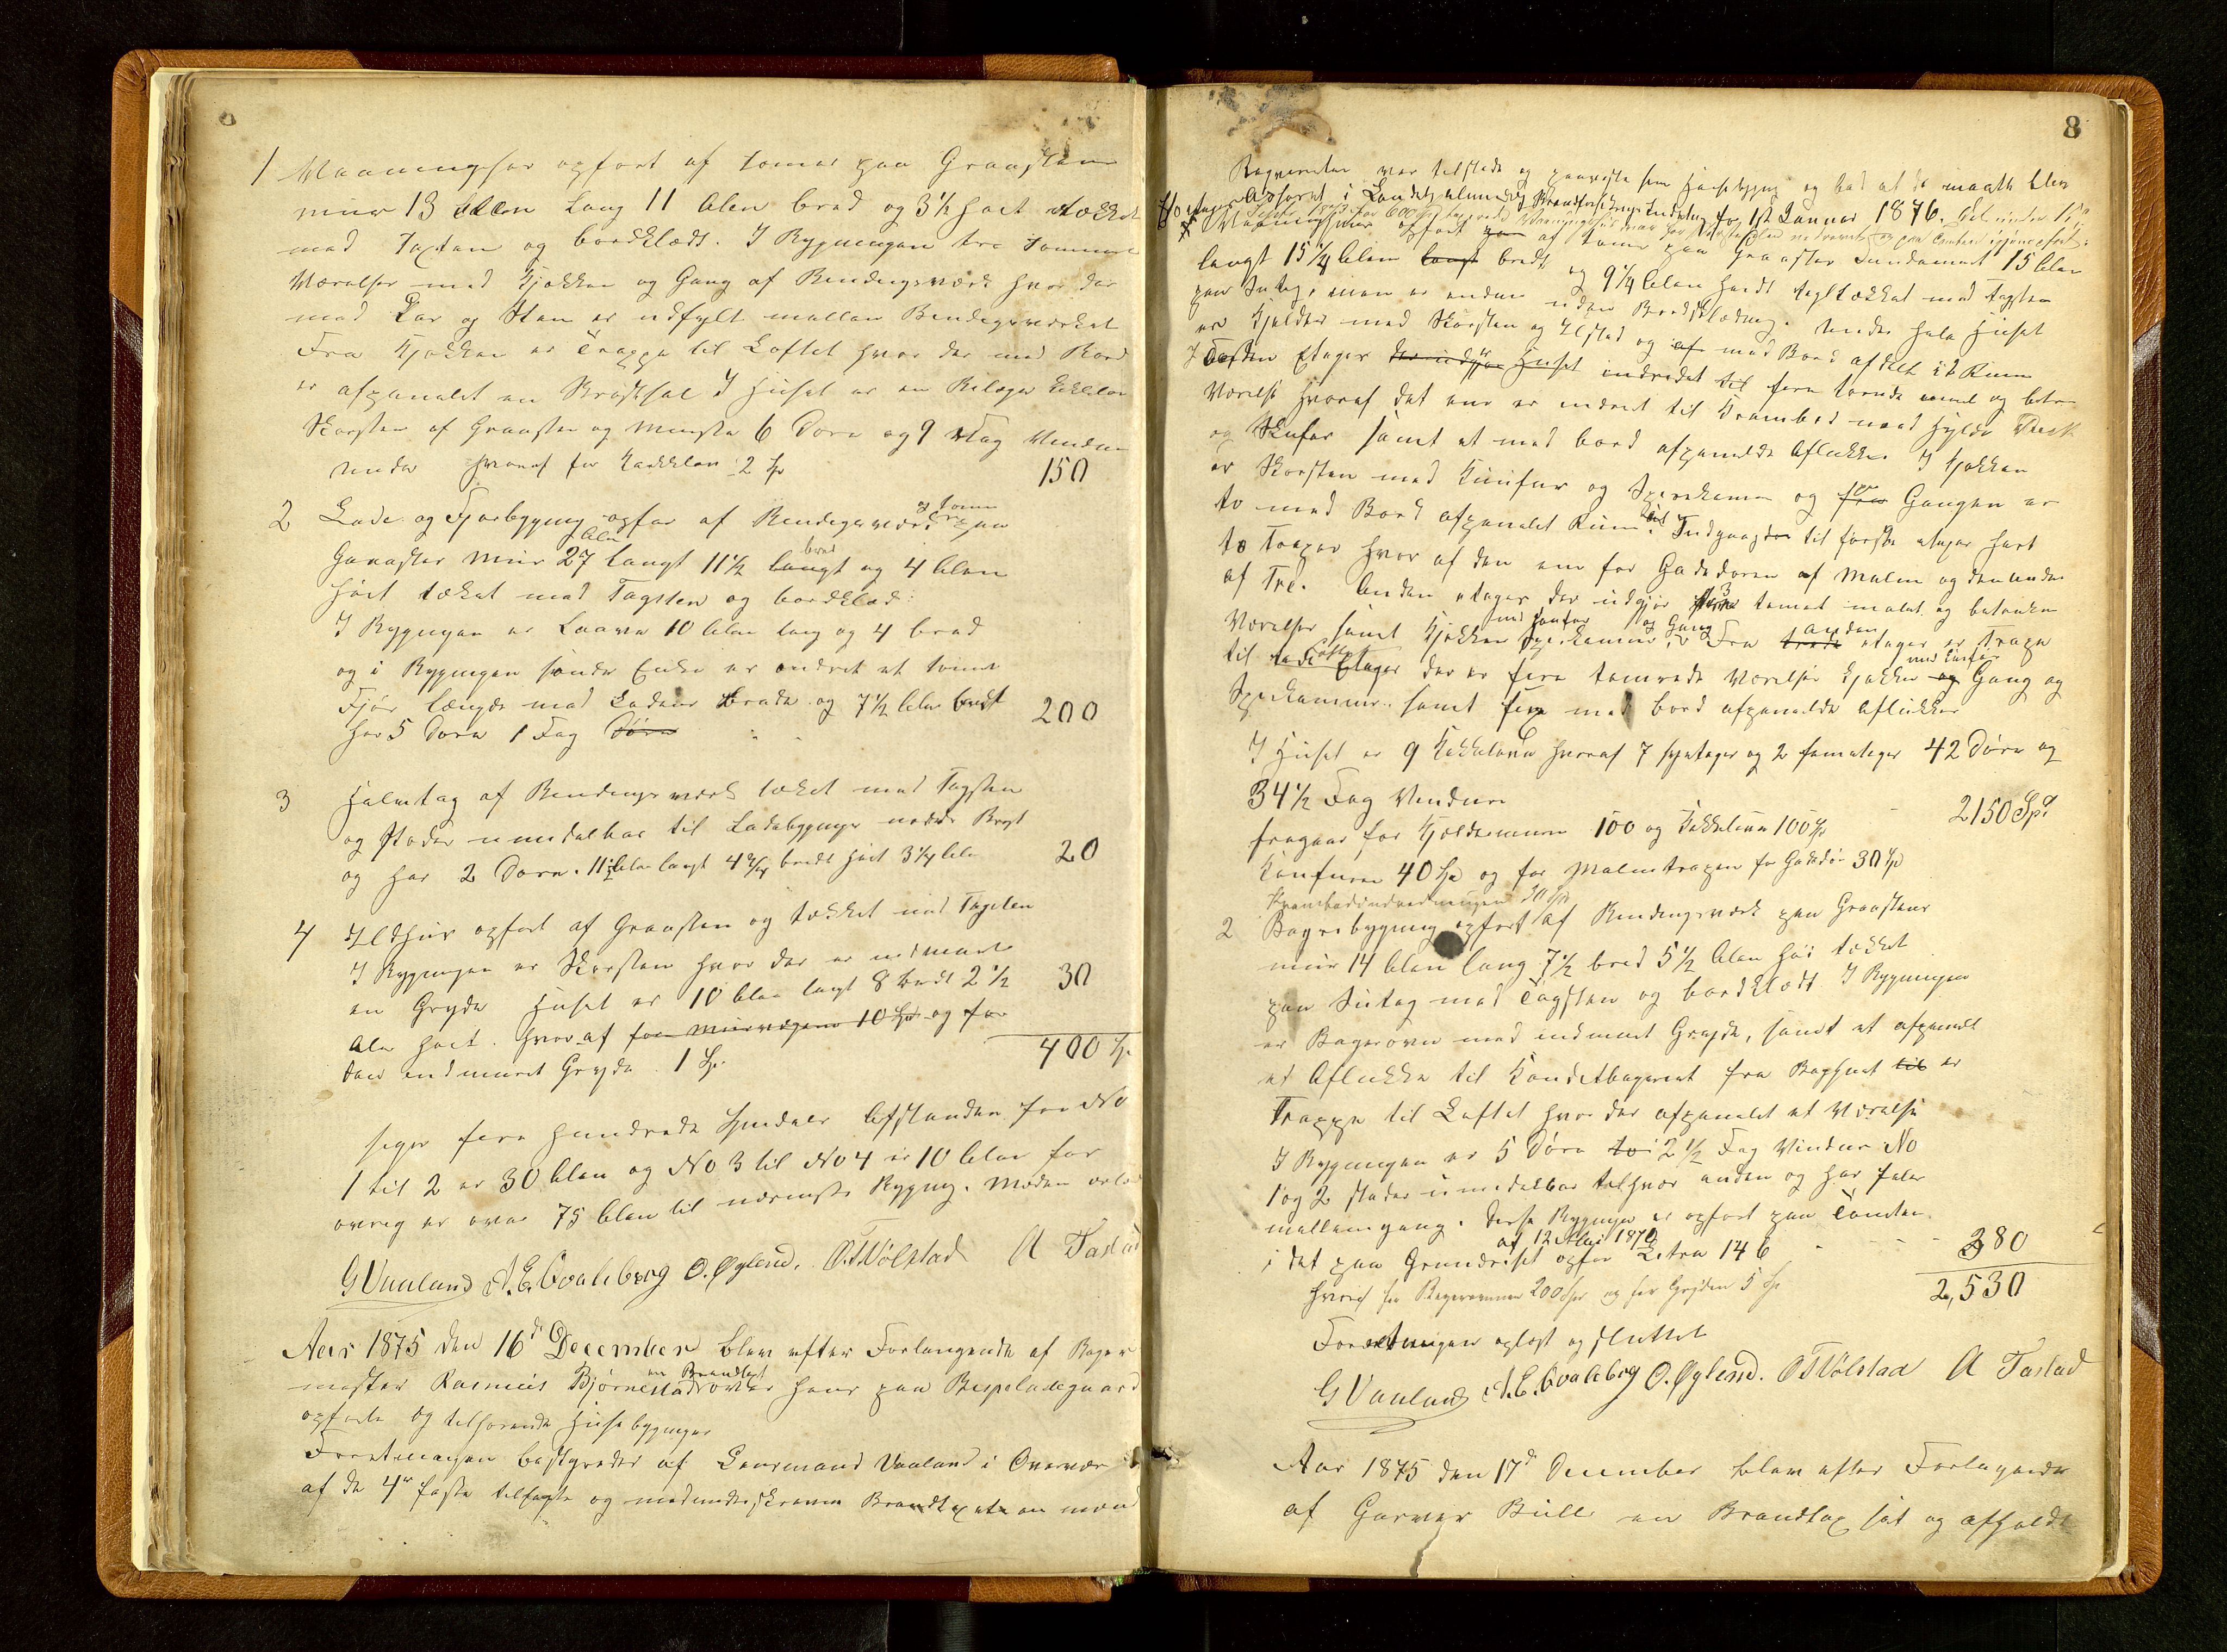 1 Vaaningshus opfört af tömer paa Graastens
muur 13 Alen lang 11 Alen bred og 3½ höit tækket
med Taxten og bordklædt. I Bygningen tre tömmret
Værelser med Kjøkken og Gang af Bindingsværk hvor der
med Ler og Sten er udfylt mellem Bindingsværket
Fra Kjøkken er Trappe til Loftet hvor der med Bord
er afpanelet en Sal I Huset er en Kakkelov
Skorsten af Graasten og 6 Döre og 9 Fag Vinduer
hvoraf for Kakkelov 2 Sp 150
2 Lade og Fjosbygning opför af Bindingsværk og tömer paa
Graasten Muur 27 Alen langt 11½ langt bred og 4 Alen
höit tæket med Tagsten og bordklæd:
I Bygnigen er Laave 10 Alen lang og 4 bred
og i Bygningen söndre Ende er indret et tömret
Fjös længde med Ladens Brede og 7½ Alen bredt
har 5 Döre 1 Fag Döre 200
3 Halmtag af Bindingsværk tæket med Tagsten
og stöder umidelbar til Ladebygningens
og har 2 Döre. 11½ Alen langt 4¾ bredt höit 3¼ Alen 20
4 Ildhus opfört af Graasten og tækket med Tagsten
I Bygningen er Skorsten hvor der er indmuret
en Gryde Huset er 10 Alen langt 8 bredt 2½ 30
Alen höit. hvoraf for Muurvægene 10 Sp og for
den indmuret Gryde 1 Sp. 400 Sp
siger fire hundrede Spesdaler Afstanden fra No
1 til 2 er 30 Alen og No 3 til No 4 er 10 Alen for
övrig er over 75 Alen til nærmeste Bygning.
G Vaaland A. E. Qvaleberg O. Øglend. O. T Vølstad A Tastad
Aar 1875 den 16d December blev efter Forlangende af Bager
mester Rasmus Bjørnestad en Brandtaxt over hans paa
opförte og tilhörende Huse bygninger
Forretningen bestyredes af Lensmand Vaaland i Overvær
af de 4re faste tilsagte og medunderskrevne Brandtaxt mænd
8
Requirenten var tilstede og paaviste sine Husebygning og bad at de maatte blive
i Landets almindelig Brandforsikrings Indretning for 1ste Januar 1876.
Vaaningshuus opfört paa af tömer paa Graasten fundament 15 Alen
langt 15¼ Alen langt bredt og 9¼ Alen höidt tegltækket med Tagsten
men er endnu uden Bordklædning. Under hele Huset
er Kjelder med Skorsten og Ildsted og af med Bord afdelt Rum
I Etager der udgjör Huset indredet til fire
Værelse hvoraf det ene er indret til Krambod med Hylde Disk
og Skufer samt et med bord afpanelede Aflukke. I Kjøkken
er Skorsten med Kumfur og Spisekamer og fra Gangen er
to med Bord afpanelet Rum. Indgangen til förste etage
to Trapper hvor af den ene for Gadedören af Malm og den anden
af Træ. Anden etager der udgjör 3 tömret malet og betrukne
Værelser samt Kjøkken med komfur Spisekammer og Gang Fra anden etager er Trape
til Loftet Etager der er fire tömrede Værelser Kjøkken med komfur og Gang og
Spiskammer. samt fire med bord afpanelede Aflukker
I Huset er 9 Kakkelovne hvoraf 7 og 2 42 Döre og
34½ Fag Vinduer 2150 Spd
fragaar for Kjældermuren 100 og Kakkelovne 100 Sp
Komfuren 40 Sp og for Malmtrapen for Gadedör 30 Sp
Krambodindredningen 30 Sp
2 Bageribygning opfört af Bindingsværk paa Graastens
muur 14 Alen lang 7½ bred 5½ Alen höi tækket
paa Sutag med Tagsten og bordklædt I Bygningen
er Bagerovn med indmuret Gryde, samt et afpanelt
et Aflukke til Konditbageriet fra Baghuset til er
Trappe til Loftet hvor der afpanelet et Værelse
I Bygningen er 5 Döre to i 2½ Fag Vinduer No
1 og 2 stöder umidelbar til hver anden og har
mellemgang. Disse Bygninger er opfört paa Tomten
i det paa Grundriset af 12 Mai 1870 opför Litra 146 380
hvoraf for Bagerovnen 200 Sp og for Gryden 5 Sp 2,530
Forretningen oplæst og sluttet
G Vaaland A. E. Qvaleberg O. Øglend. O T Vølstad A Tastad
Aar 1875 den 17d December blev efter Forlangende
af Garver Bull en Brandtax sat og afholdt